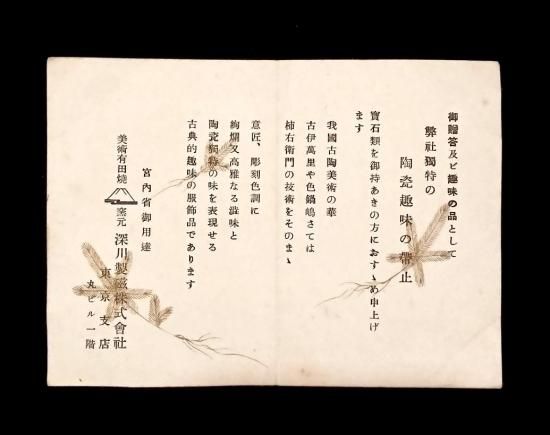 御贈答及ビ趣味の品として
弊社獨特の
陶瓷趣味の帶止
寶石類を御持あきの方におすゝめ申上げ
ます
我國古陶美術の華
古伊萬里や色鍋嶋さては
柿右衛門の技術をそのまゝ
意匠、彫刻色調に
絢爛又高雅なる澁味と
陶瓷獨特の味を表現せる
古典的趣味の服飾品であります
宮內省御用達
美術有田燒
窯元 深川製磁株式會社
東京支店
丸ビル一階